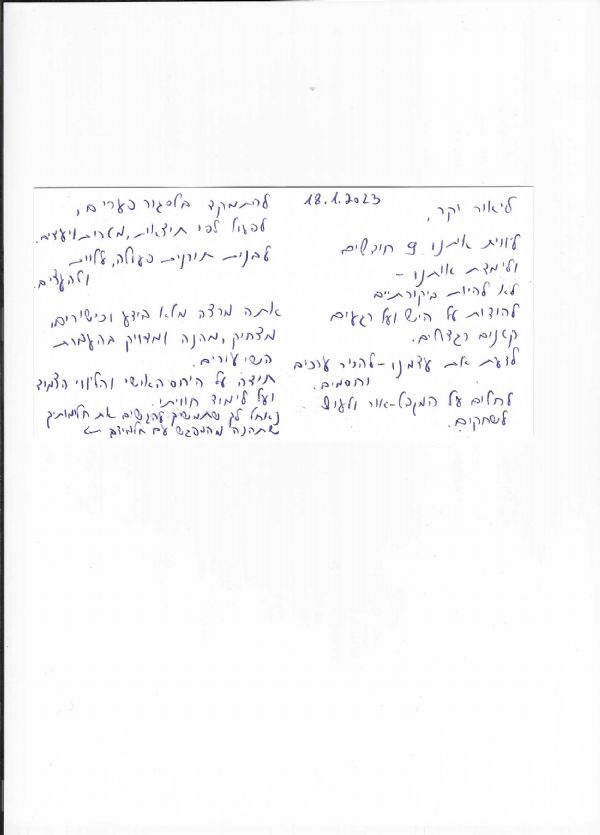 18.1.2023
ליאור יקר,
ליווית איתנו 9 חודשים
ולימדת אותנו -
לא להיות ביקורתיים
להודות על היש ועל רגעים
קטנים וגדולים.
לדעת את עצמנו - להכיר ערכים
וחוסמים.
לחלום על המקפל-אור ולעוף
לשחקים.
להתמקד בלסגור פערים,
לפעול לפי תוצאות, מטרות ויעדים.
לבנות תורנית פעולה, עלוית
ולהעצים.
אתה מרצה מלא בידע וכישורים,
מצחיק, מהנה ומדויק בהעברת
השיעורים.
תודה על היחס האישי והליווי הצמוד
ועל לימוד חוויתי.
נאחל לך שתמשיך להגשים את חלומותיך
שתהנה מהמפגש עם תלמידיך